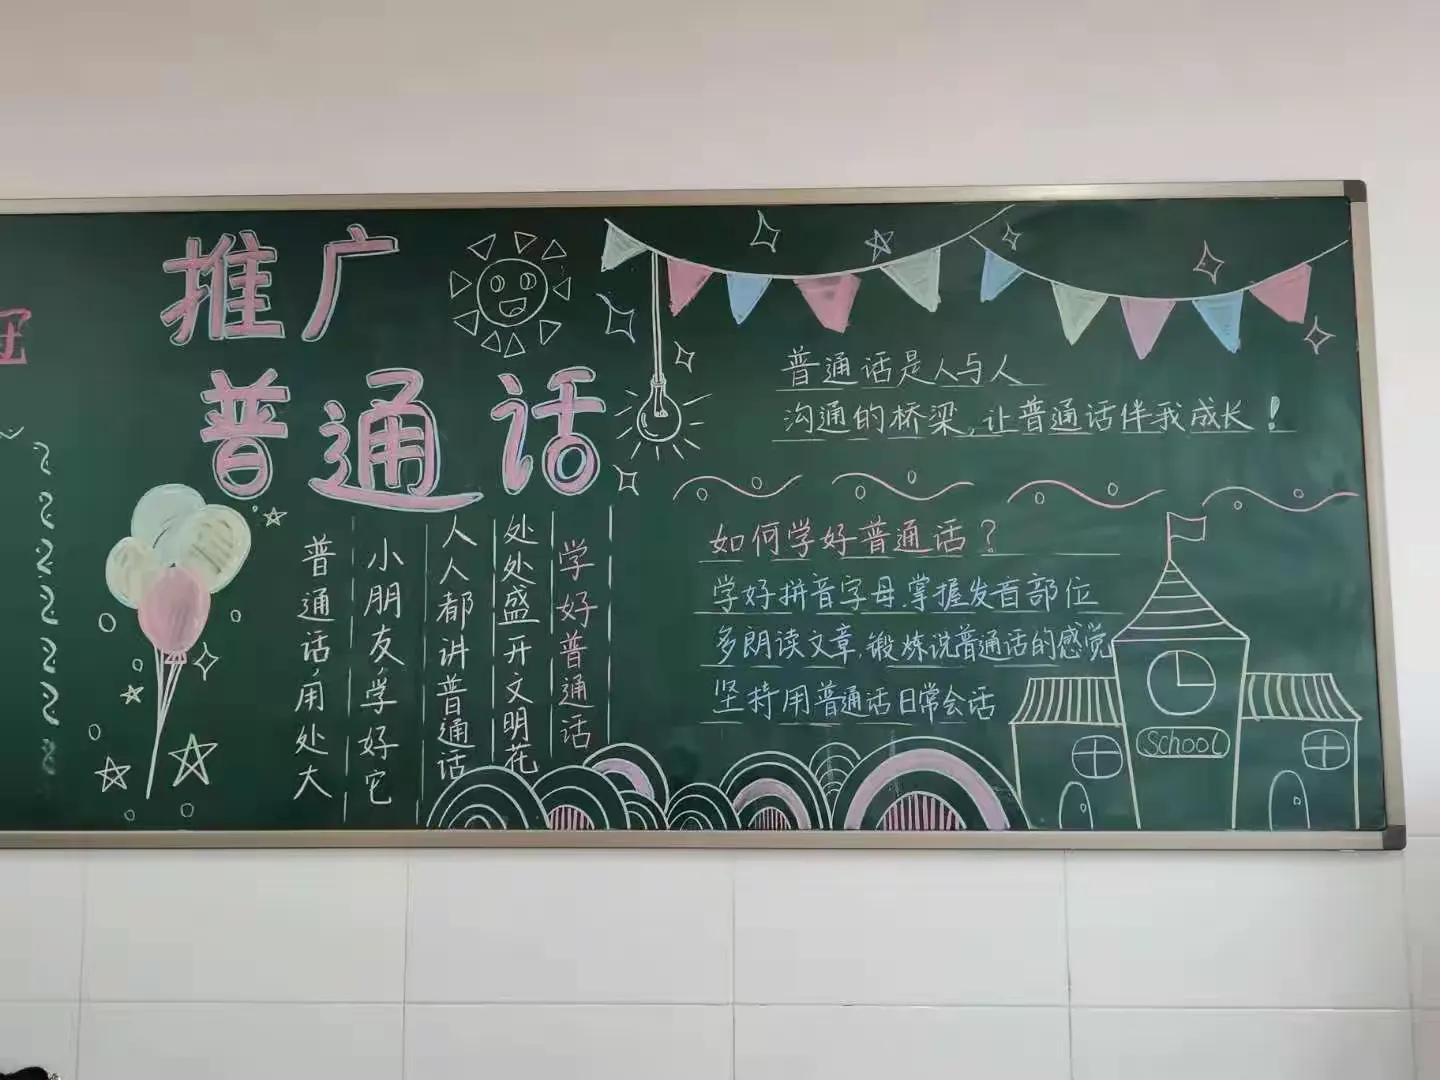 推广
普通话
普通话是人与人
沟通的桥梁,让普通话伴我成长!
学好普通话
处处盛开文明花
人人都讲普通话
小朋友,学好它
普通话,用处大
如何学好普通话?
学好拼音字母.掌握发音部位
多朗读文章,锻炼说普通话的感觉
坚持用普通话日常会话
School